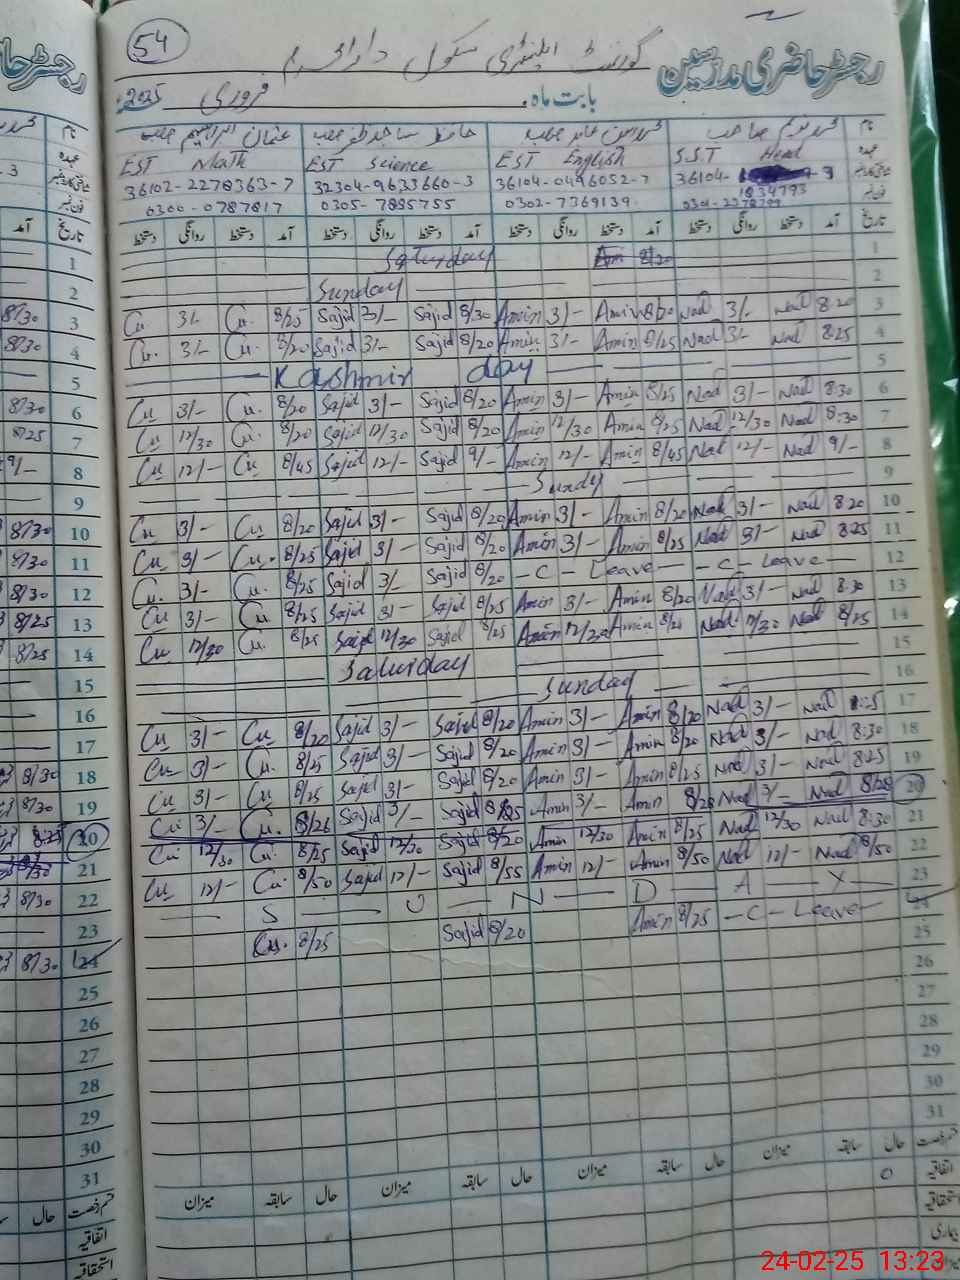 54
رجسٹر حاضری مدرسین گورنمنٹ ایلیمنٹری سکول
بابت ماہ فروری 2025ء
نام محمد ندیم صاحب محمد امین عابد صاحب حافظ ساجد ظفر صاحب عثمان ابراہیم صاحب
عہدہ S.S.T Head EST English EST Science EST Math
شناختی کارڈ نمبر 36104- 9 36104-0496052-7 32304-9633660-3 36102-2278363-7
1034793
فون نمبر 0302-7369139 0305-7895755 0300-0787817
تاریخ آمد دستخط روانگی دستخط آمد دستخط روانگی دستخط آمد دستخط روانگی دستخط آمد دستخط روانگی دستخط
1 8/20 Am Saturday
2 Sunday
3 8:20 Nad 3/- Nad 8/20 Amin 3/- Amin 8/30 Sajid 3/- Sajid 8/25 Cu. 3/- Cu.
4 8:25 Nad 3/- Nad 8/25 Amin 3/- Amin 8/20 Sajid 3/- Sajid 8/20 Cu. 3/- Cu.
5 Kashmir day
6 8:30 Nad 3/- Nad 8/25 Amin 3/- Amin 8/20 Sajid 3/- Sajid 8/20 Cu. 3/- Cu
7 8:30 Nad 12/30 Nad 8/25 Amin 12/30 Amin 8/20 Sajid 12/30 Sajid 8/20 Cu. 12/30 Cu
8 9/- Nad 12/- Nad 8/45 Amin 12/- Amin 9/- Sajid 12/- Sajid 8/45 Cu 12/- Cu
9 Sundy
10 8:20 Nad 3/- Nad 8/20 Amin 3/- Amin 8/20 Sajid 3/- Sajid 8/20 Cu 3/- Cu
11 8:25 Nad 3/- Nad 8/25 Amin 3/- Amin 8/20 Sajid 3/- Sajid 8/25 Cu. 3/- Cu
12 -C- Leave- -C- Leave- 8/20 Sajid 3/- Sajid 8/25 Cu. 3/- Cu.
13 8:30 Nad 3/- Nad 8/20 Amin 3/- Amin 8/25 Sajid 3/- Sajid 8/25 Cu 3/- Cu
14 8/25 Nad 12/30 Nad 8/25 Amin Amin 8/25 Sajid 12/30 Sajid 8/25 Cu. 12/30 Cu
15 Saturday
16 Sunday
17 Nad 3/- Nad 8/20 Amin 3/- Amin 8/20 Sajid 3/- Sajid 8/20 Cu 3/- Cu
18 8:30 Nad 3/- Nad 8/20 Amin 3/- Amin 8/20 Sajid 3/- Sajid 8/25 Cu. 3/- Cu
19 8:25 Nad 3/- Nad 8/25 Amin 3/- Amin 8/20 Sajid 3/- Sajid 8/25 Cu 3/- Cu
20 Nad 3/- Nad Amin 3/- Amin Sajid 3/- Sajid 8/26 Cu. 3/- Cu
21 8:30 Nad 12/30 Nad 8/25 Amin 12/30 Amin 8/20 Sajid 12/30 Sajid 8/25 Cu. 12/30 Cu
22 8/50 Nad 12/- Nad 8/50 Amin 12/- Amin 8/55 Sajid 12/- Sajid 8/50 Cu. 12/- Cu
23 S U N D A Y
24 -C- Leave- 8/25 Amin 8/20 Sajid 8/25 Cu.
25
26
27
28
29
30
31
قسم رخصت حال سابقہ میزان حال سابقہ میزان حال سابقہ میزان حال سابقہ میزان
اتفاقیہ 0
استحقاقیہ
بیماری
میزان
رجسٹر حا
نام
عہدہ
شناختی کارڈ نمبر
فون نمبر
تاریخ آمد
1
2
3 8/30
4 8/30
5
6 8/30
7 8/25
8 9/-
9
10 8/30
11 8/30
12 8/30
13 8/25
14 8/25
15
16
17
18 8/30
19 8/30
20 8:25
21 8/30
22 8/30
23
24 8/30
25
26
27
28
29
30
31
قسم رخصت حال
اتفاقیہ
استحقاقیہ
24-02-25 13:23